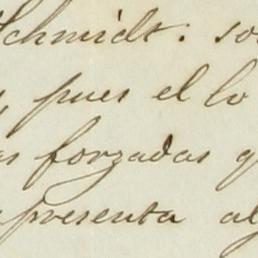 Schmidt: so
pues el lo
as forzadas q
presenta al